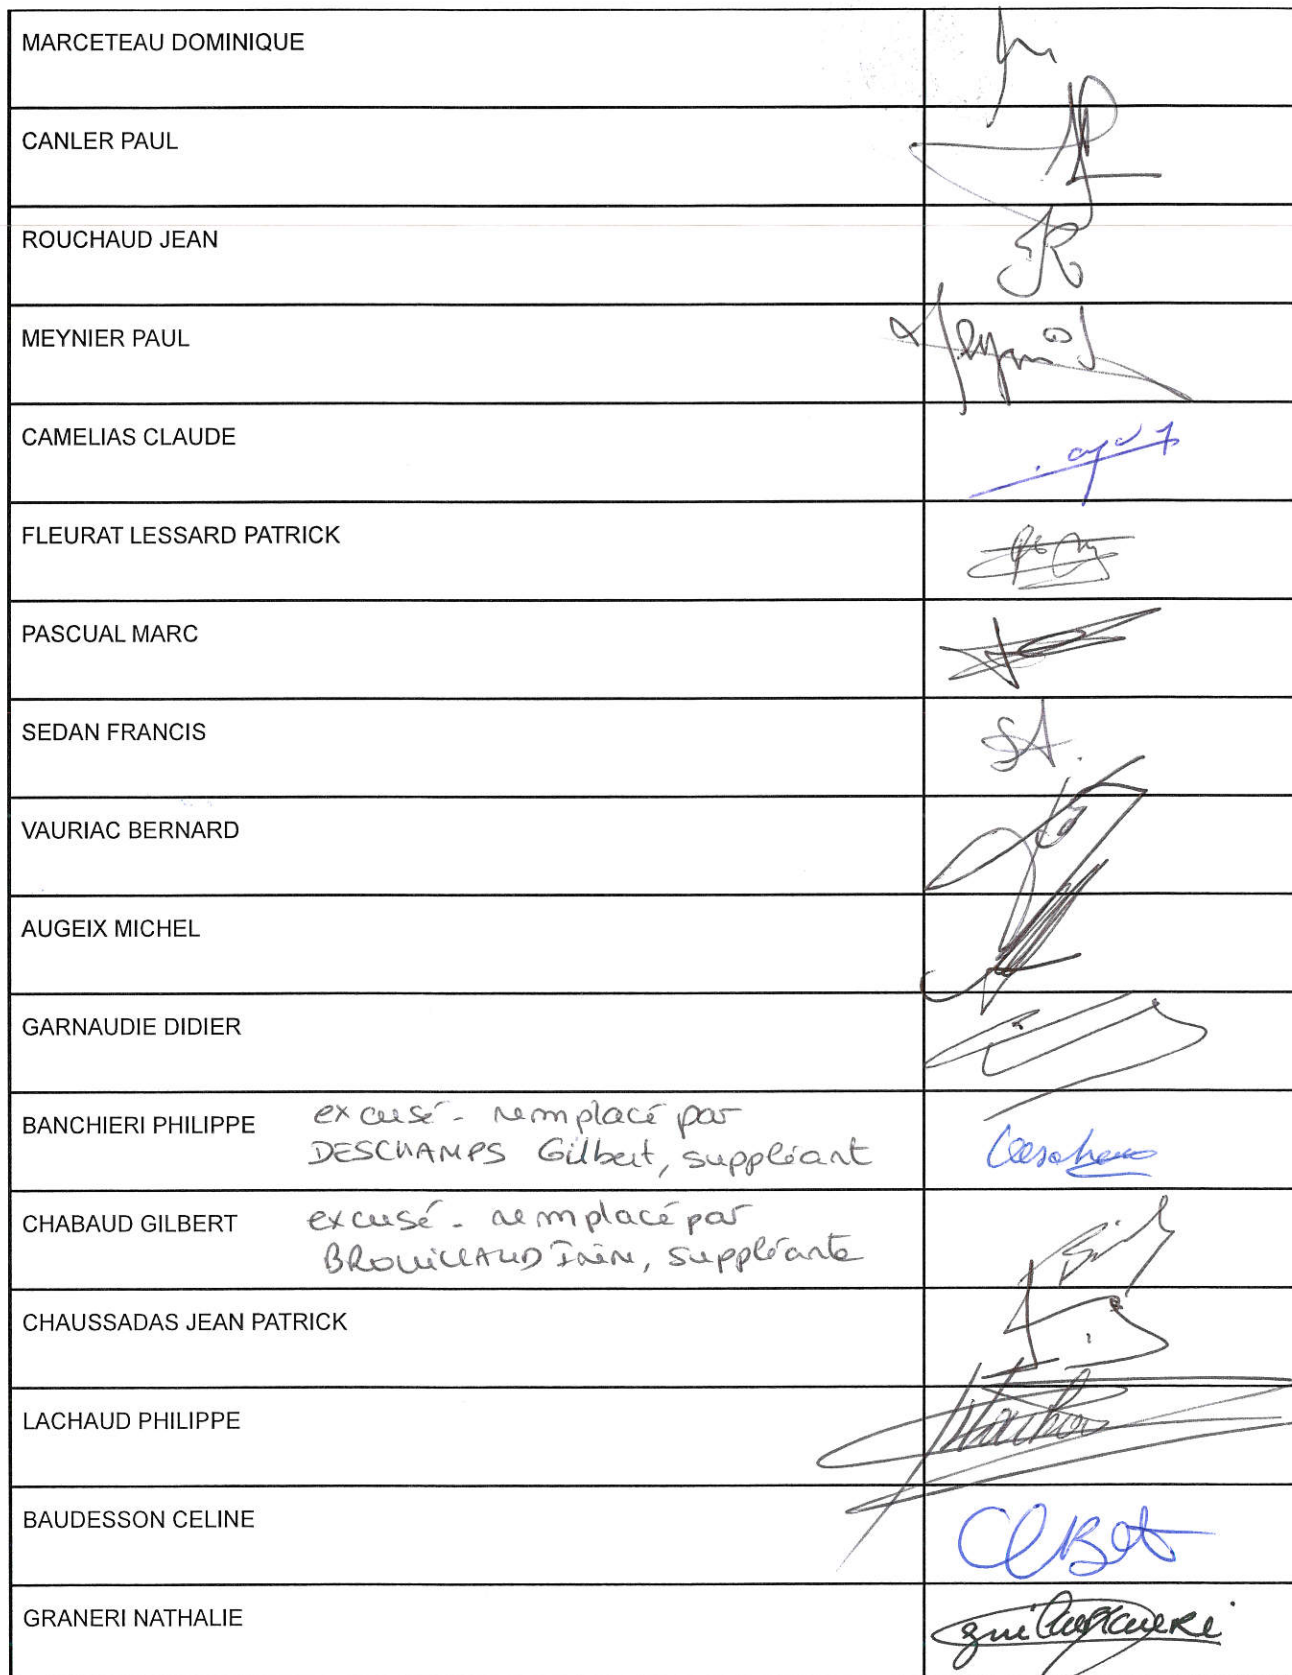 MARCETEAU DOMINIQUE
CANLER PAUL
ROUCHAUD JEAN
MEYNIER PAUL
CAMELIAS CLAUDE
FLEURAT LESSARD PATRICK
PASCUAL MARC
SEDAN FRANCIS
SA.
VAURIAC BERNARD
AUGEIX MICHEL
GARNAUDIE DIDIER
BANCHIERI PHILIPPE excusé - remplacé par
DESCHAMPS Gilbert, suppléant
CHABAUD GILBERT excusé - remplacé par
BROUILLAUD, suppléante
CHAUSSADAS JEAN PATRICK
LACHAUD PHILIPPE
BAUDESSON CELINE
GRANERI NATHALIE